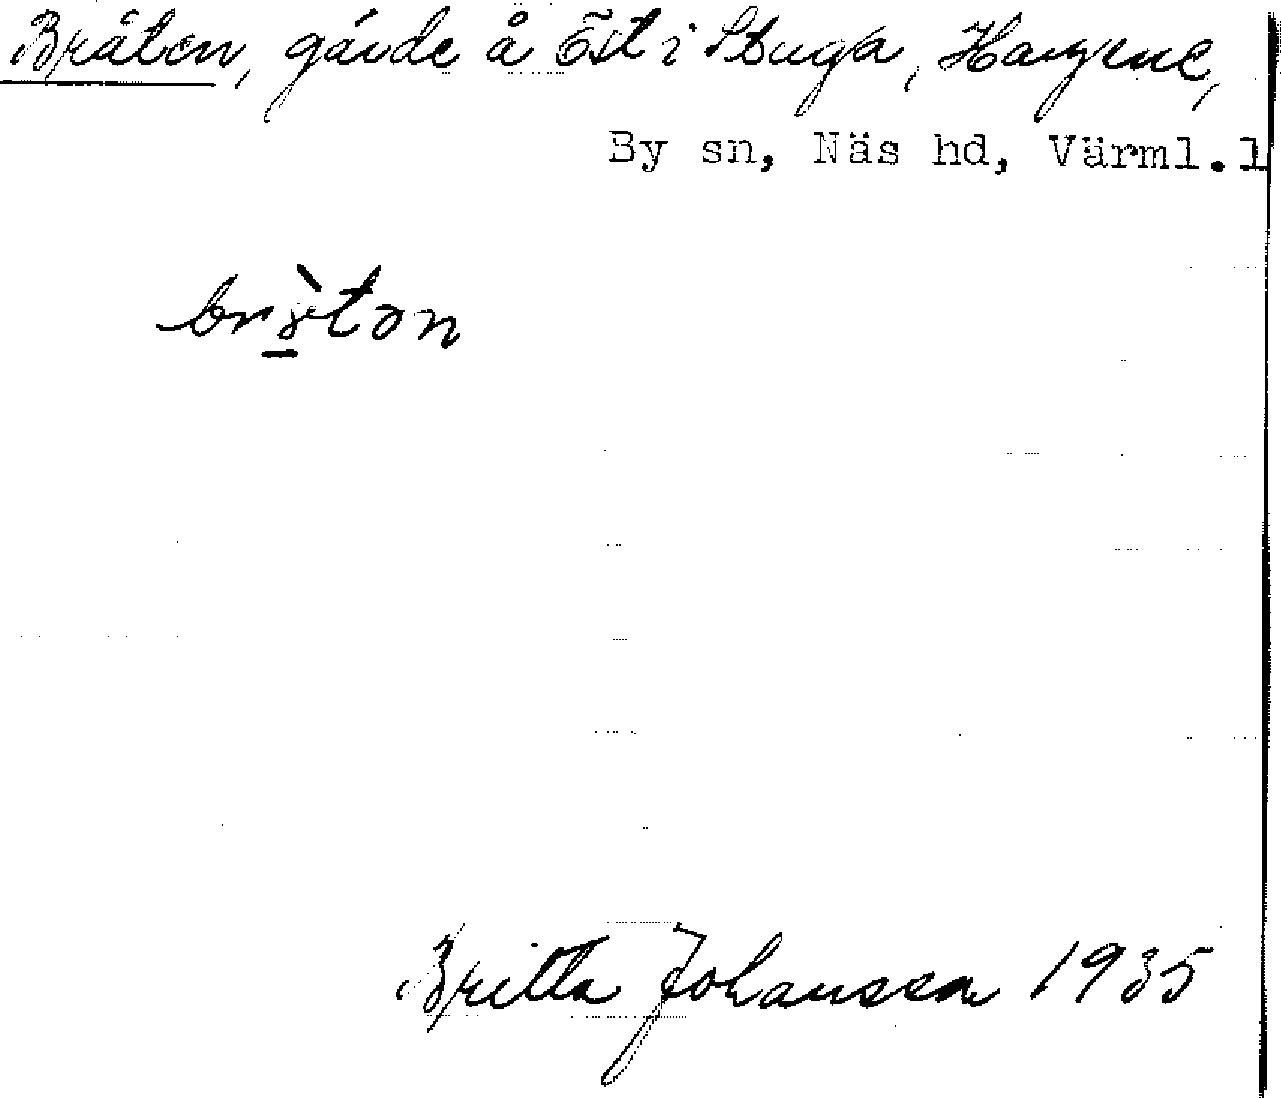 Bråten, gärde å Öst i Stuga, Hagene,
By sn, Näs hd, Värml.l
Britta Johansson 1935